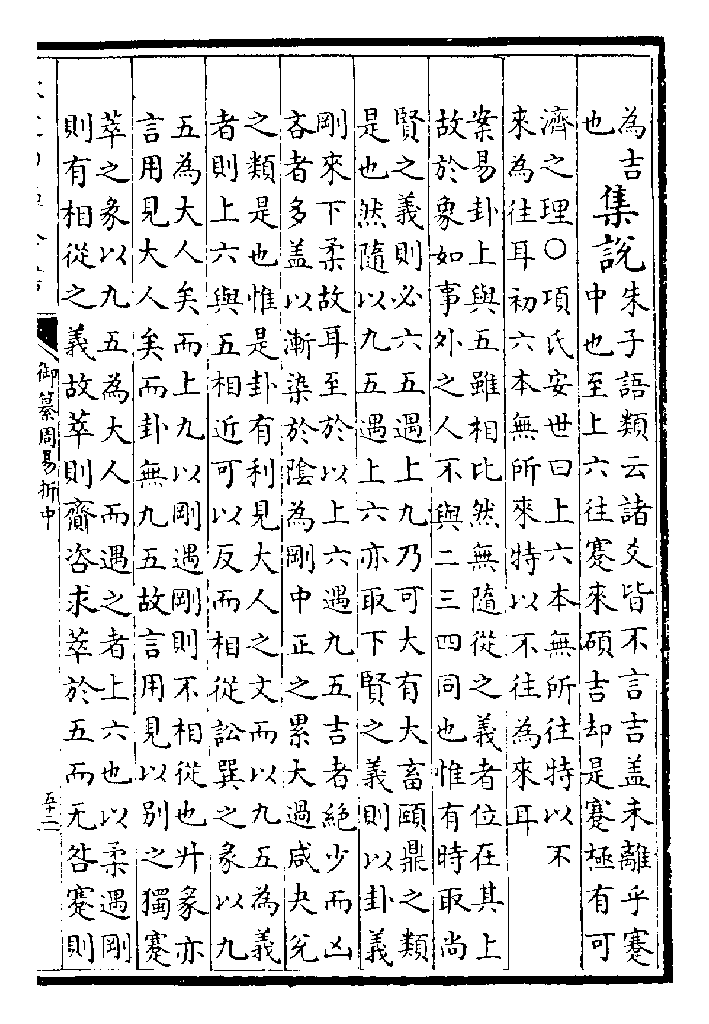 為吉
也
集說
朱子語類云諸爻皆不言吉蓋未離乎蹇
中也至上六往蹇來碩吉却是蹇極有可
濟之理○項氏安世曰上六本無所往特以不
來為往耳初六本無所來特以不往為來耳
案易卦上與五雖相比然無隨從之義者位在其上
故於象如事外之人不與二三四同也惟有時取尚
賢之義則必六五遇上九乃可大有大畜頤鼎之類
是也然隨以九五遇上六亦取下賢之義則以卦義
剛來下柔故耳至於以上六遇九五吉者絶少而凶
吝者多蓋以漸染於陰為剛中正之累大過咸夬兌
之類是也惟是卦有利見大人之文而以九五為義
者則上六與五相近可以反而相從訟巽之彖以九
五為大人矣而上九以剛遇剛則不相從也升彖亦
言用見大人矣而卦無九五故言用見以別之獨蹇
萃之彖以九五為大人而遇之者上六也以柔遇剛
則有相從之義故萃則齎咨求萃於五而无咎蹇則
御纂周易折中
五十二